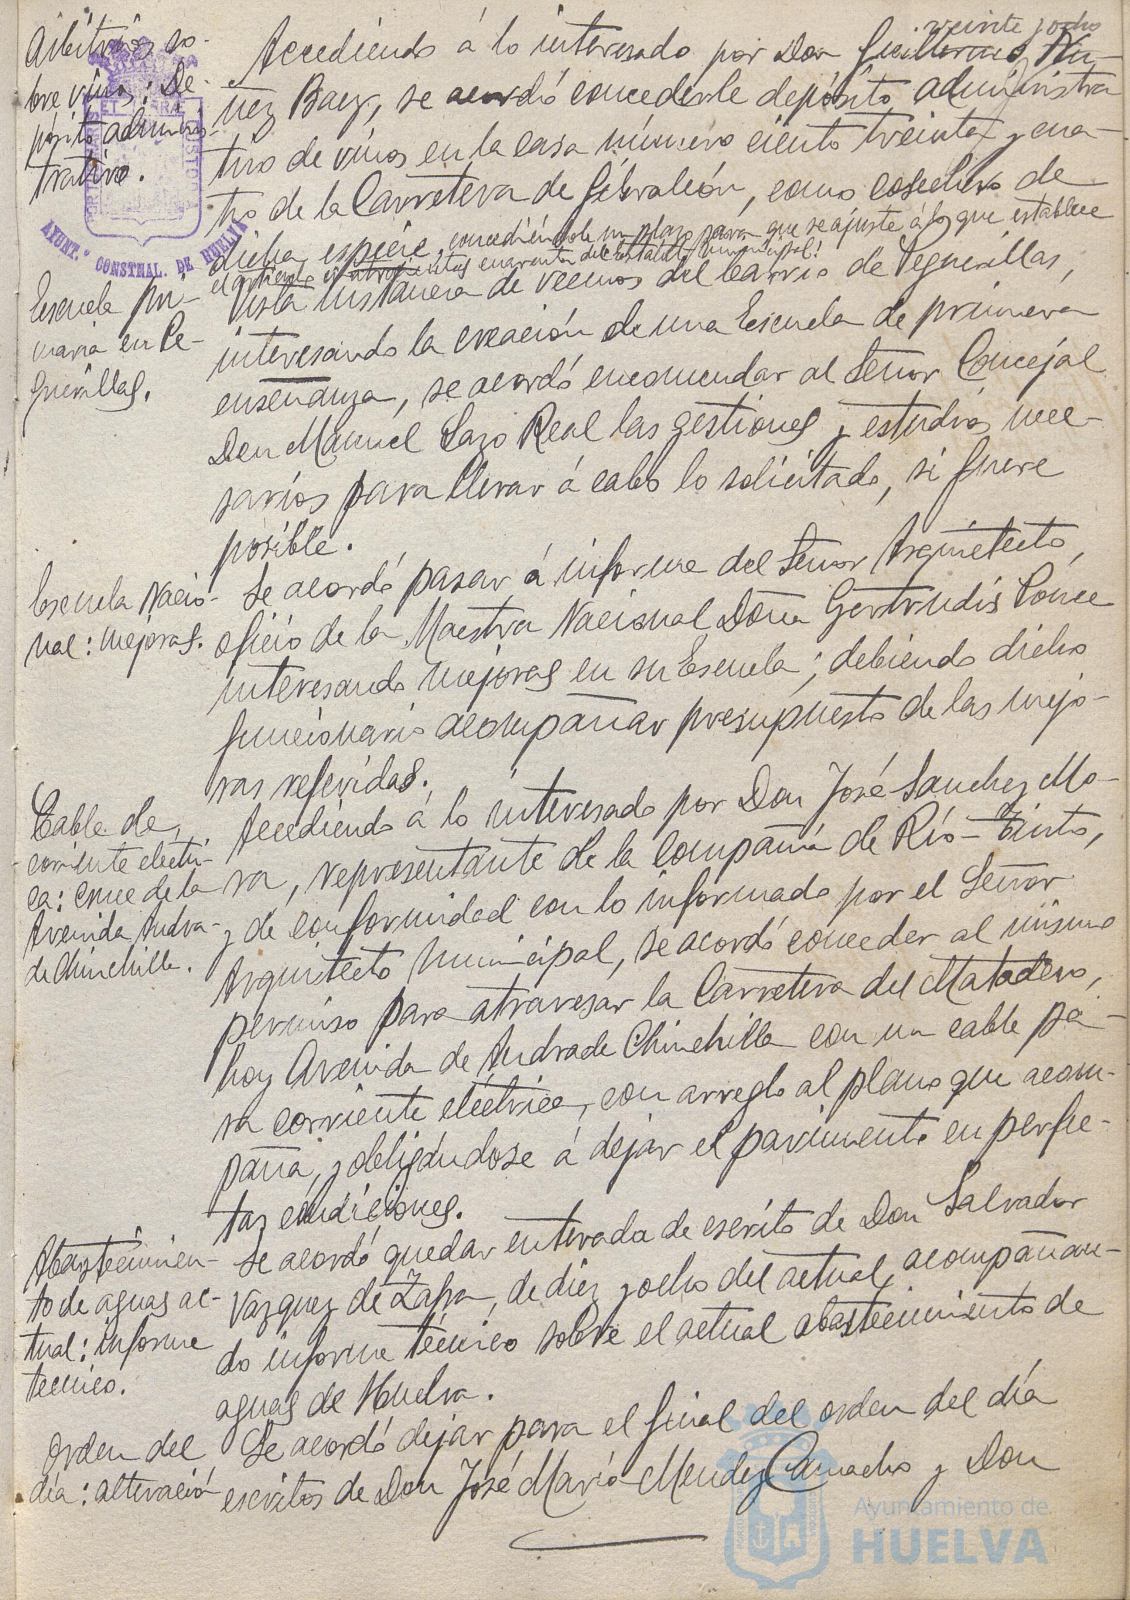 veinte y ocho
Arbitrios so-
bre vinos: De-
pósito adminis-
trativo.
Accediendo á lo interesado por Don Guillermo Nu-
ñez Baez, se acordó concederle depósito administra
tivo de vinos en la casa número ciento treinta y cua-
tro de la Carretera de Gibraleón, como cosechero de
dicha especie, concediéndole un plazo para que se ajuste á lo que establece
el artículo cuatrocientos cuarenta del Estatuto municipal.
AYUNT.º CONSTNAL. DE HUELVA
Escuela pri-
maria en Pe-
guerillas.
Vista instancia de vecinos del barrio de Peguerillas,
interesando la creación de una Escuela de primera
enseñanza, se acordó encomendar al Señor Concejal
Don Manuel Lazo Real las gestiones y estudios nece-
sarios para llevar á cabo lo solicitado, si fuere
posible.
Escuela Nacio-
nal: mejoras.
Se acordó pasar á informe del Señor Arquitecto,
oficio de la Maestra Nacional Doña Gertrudis Ponce
interesando mejoras en su Escuela; debiendo dicho
funcionario acompañar presupuesto de las mejo-
ras referidas.
Cable de
corriente eléctri-
ca: cruce de la
Avenida Andra-
de Chinchilla.
Accediendo á lo interesado por Don José Sanchez Mo-
ra, representante de la Compañía de Río-Tinto,
y de conformidad con lo informado por el Señor
Arquitecto Municipal, se acordó conceder al mismo
permiso para atravesar la Carretera del Matadero,
hoy Avenida de Andrade Chinchilla con un cable pa-
ra corriente eléctrica, con arreglo al plano que acom-
paña, y obligándose á dejar el pavimento en perfec-
tas condiciones.
Abastecimien-
to de aguas ac-
tual: informe
técnico.
Se acordó quedar enterada de escrito de Don Salvador
Vazquez de Zafra, de diez y ocho del actual, acompañan-
do informe técnico sobre el actual abastecimiento de
aguas de Huelva.
Orden del
día: alteración
Se acordó dejar para el final del orden del día
escritos de Don José María Mendez Camacho y Don
Ayuntamiento de
HUELVA